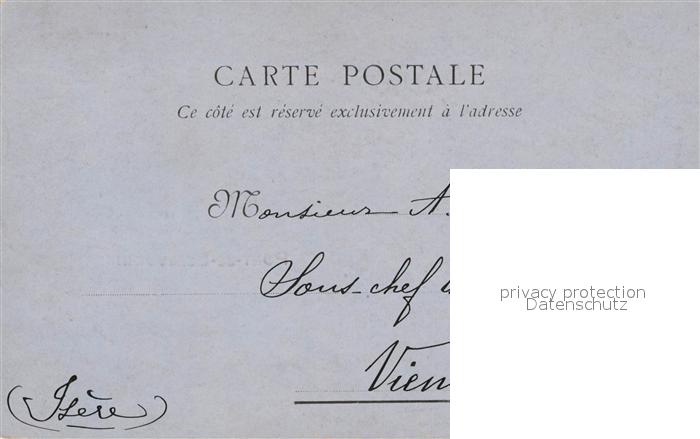 CARTE POSTALE
Ce côté est réservé exclusivement à l'adresse
Monsieur A.
Sous-chef
Vien
(Isère)
privacy protection
Datenschutz